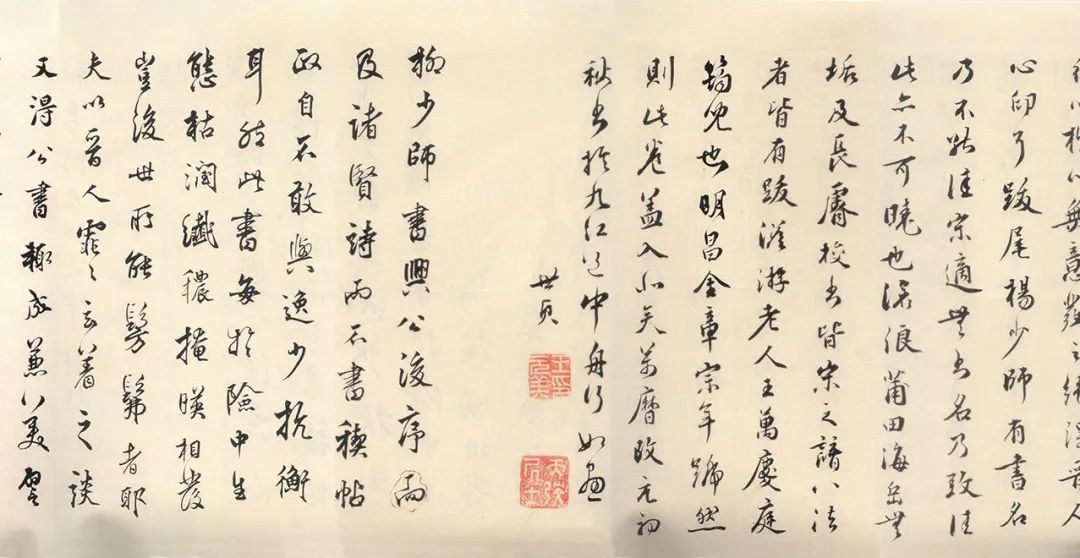 無意發之
心印了跋尾楊少師有書名
乃不能佳宗適無書名乃致佳
此亦不可曉也滄浪莆田海岳無
垢及長睿校書皆宋之諳八法
者皆有跋溪游老人王萬慶庭
筠兒也明昌金章宗年號然
則此卷蓋入北矣萬曆改元初
秋書於九江道中舟行如畫
世貞
柳少師書興公後序而
及諸賢詩而不書稧帖
政自不敢與逸少抗衡
耳然此書每於險中生
態枯潤纖穠掩暎相發
豈後世所能髣髴者耶
夫以晉人霏霏玄著之談
又得公書輙成兼美